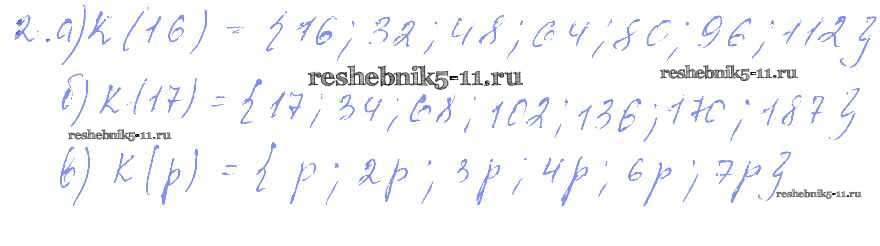 2. а) К(16) = {16; 32; 48; 64; 80; 96; 112}
reshebnik5-11.ru
reshebnik5-11.ru
б) К(17) = {17; 34; 68; 102; 136; 170; 187}
reshebnik5-11.ru
в) К(р) = {р; 2р; 3р; 4р; 6р; 7р}
reshebnik5-11.ru